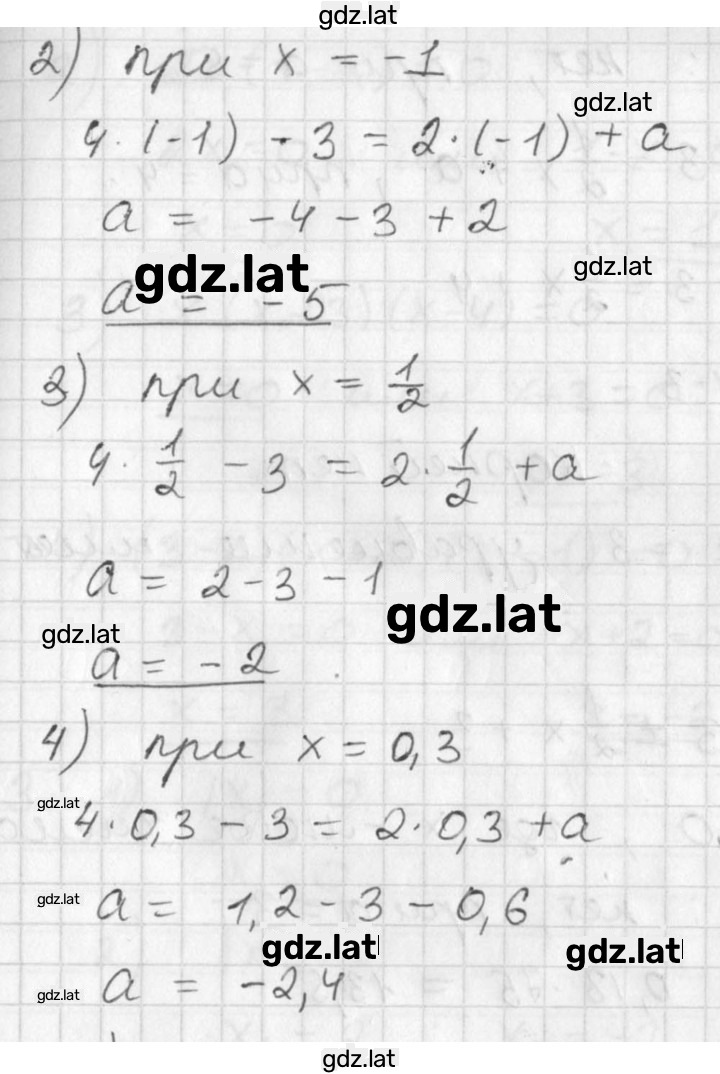 gdz.lat
2) при x = -1
gdz.lat
4·(-1) - 3 = 2·(-1) + a
a = -4 - 3 + 2
gdz.lat gdz.lat
a = -5
3) при x = 1/2
4·1/2 - 3 = 2·1/2 + a
a = 2 - 3 - 1
gdz.lat
gdz.lat
a = -2
4) при x = 0,3
gdz.lat
4·0,3 - 3 = 2·0,3 + a
gdz.lat
a = 1,2 - 3 - 0,6
gdz.lat gdz.lat
gdz.lat
a = -2,4
gdz.lat